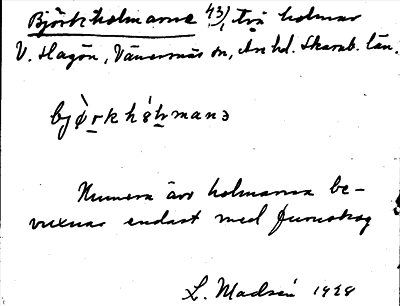 Björkholmarna 43), två holmar
V. Hagön, Vänersnäs sn, Åse hd. Skarab. län.
Numera äro holmarna be-
vuxna endast med furuskog
L. Madsén 1928